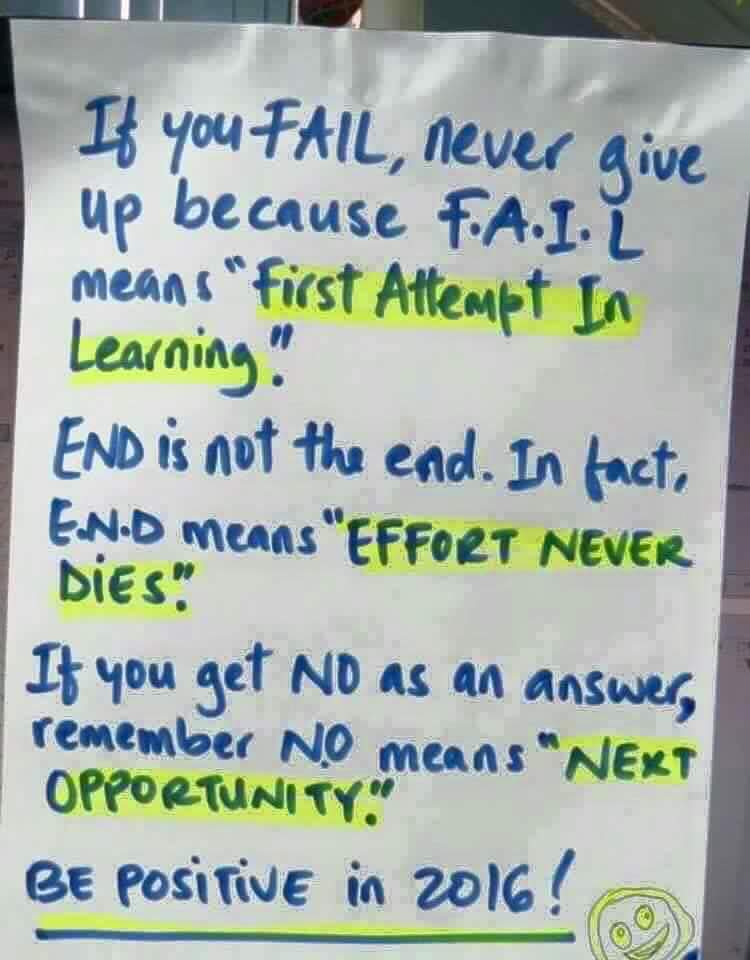 If you FAIL, never give
up because F.A.I.L
means "First Attempt In
Learning".
END is not the end. In fact,
E.N.D means "EFFORT NEVER
DiES".
If you get NO as an answer,
remember N.O means "NEXT
OPPORTUNITY."
BE POSiTiVE in 2016!